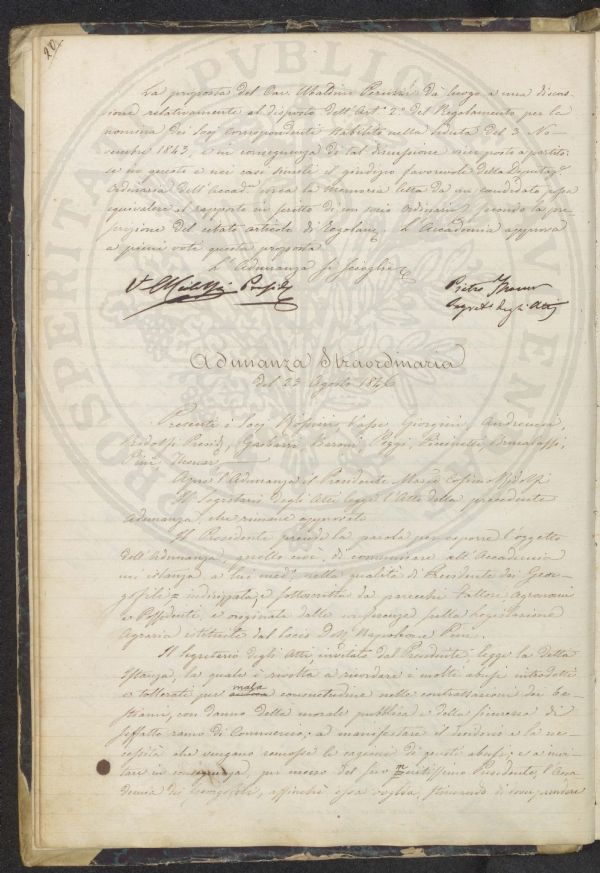 20.
La proposta del Cav. Ubaldino Peruzzi dà luogo a una discus-
sione relativamente al disposto dell'Art.° 2.° del Regolamento per la
nomina dei Socj Corrispondenti stabilito nella seduta del 3 No-
vembre 1843, e in conseguenza di tal discussione vien posto a partito:
se in questo e nei casi simili il giudizio favorevole della Deputaz.e
Ordinaria dell'Accad.a circa la Memoria letta da un candidato possa
equivalere al rapporto in scritto di un socio Ordinario secondo la pre-
scrizione del citato articolo di Regolam.to L'Accademia approva
a pieni voti questa proposta
L'Adunanza si scioglie
Presid.
Pietro Thouar
Segret.° degli Atti
Adunanza Straordinaria
del 23 Agosto 1846
Presenti i Socj Giorgini, Andreucci,
Ridolfi Presid., Garbarri Baroni Poggi,
Thouar
Aprì l'Adunanza il Presidente March. Cosimo Ridolfi
Il Segretario degli Atti legge l'Atto della precedente
Adunanza, che rimane approvato
Il Presidente prende la parola per esporre l'oggetto
dell'Adunanza, quello cioè, di comunicare all'Accademia
un'istanza, a lui med.° nella qualità di Presidente dei Geor-
gofili indirizzata, e sottoscritta da parecchi Fattori Agronomi
e Possidenti, e originata dalle conferenze sulla Legislazione
Agraria istituite dal Socio Dott. Napoleone Pini.
Il Segretario degli Atti, invitato dal Presidente, legge la detta
Istanza, la quale è rivolta a ricordare i molti abusi introdotti
e tollerati per mala consuetudine nelle contrattazioni dei be-
stiami, con danno della morale pubblica e della sicurezza di
siffatto ramo di Commercio; a manifestare il desiderio e la ne-
cessità che vengano remosse le cagioni di questi abusi; e a invi-
tare in conseguenza, per mezzo del suo meritissimo Presidente, l'Acca-
demia dei Georgofili, affinchè essa voglia, prendere